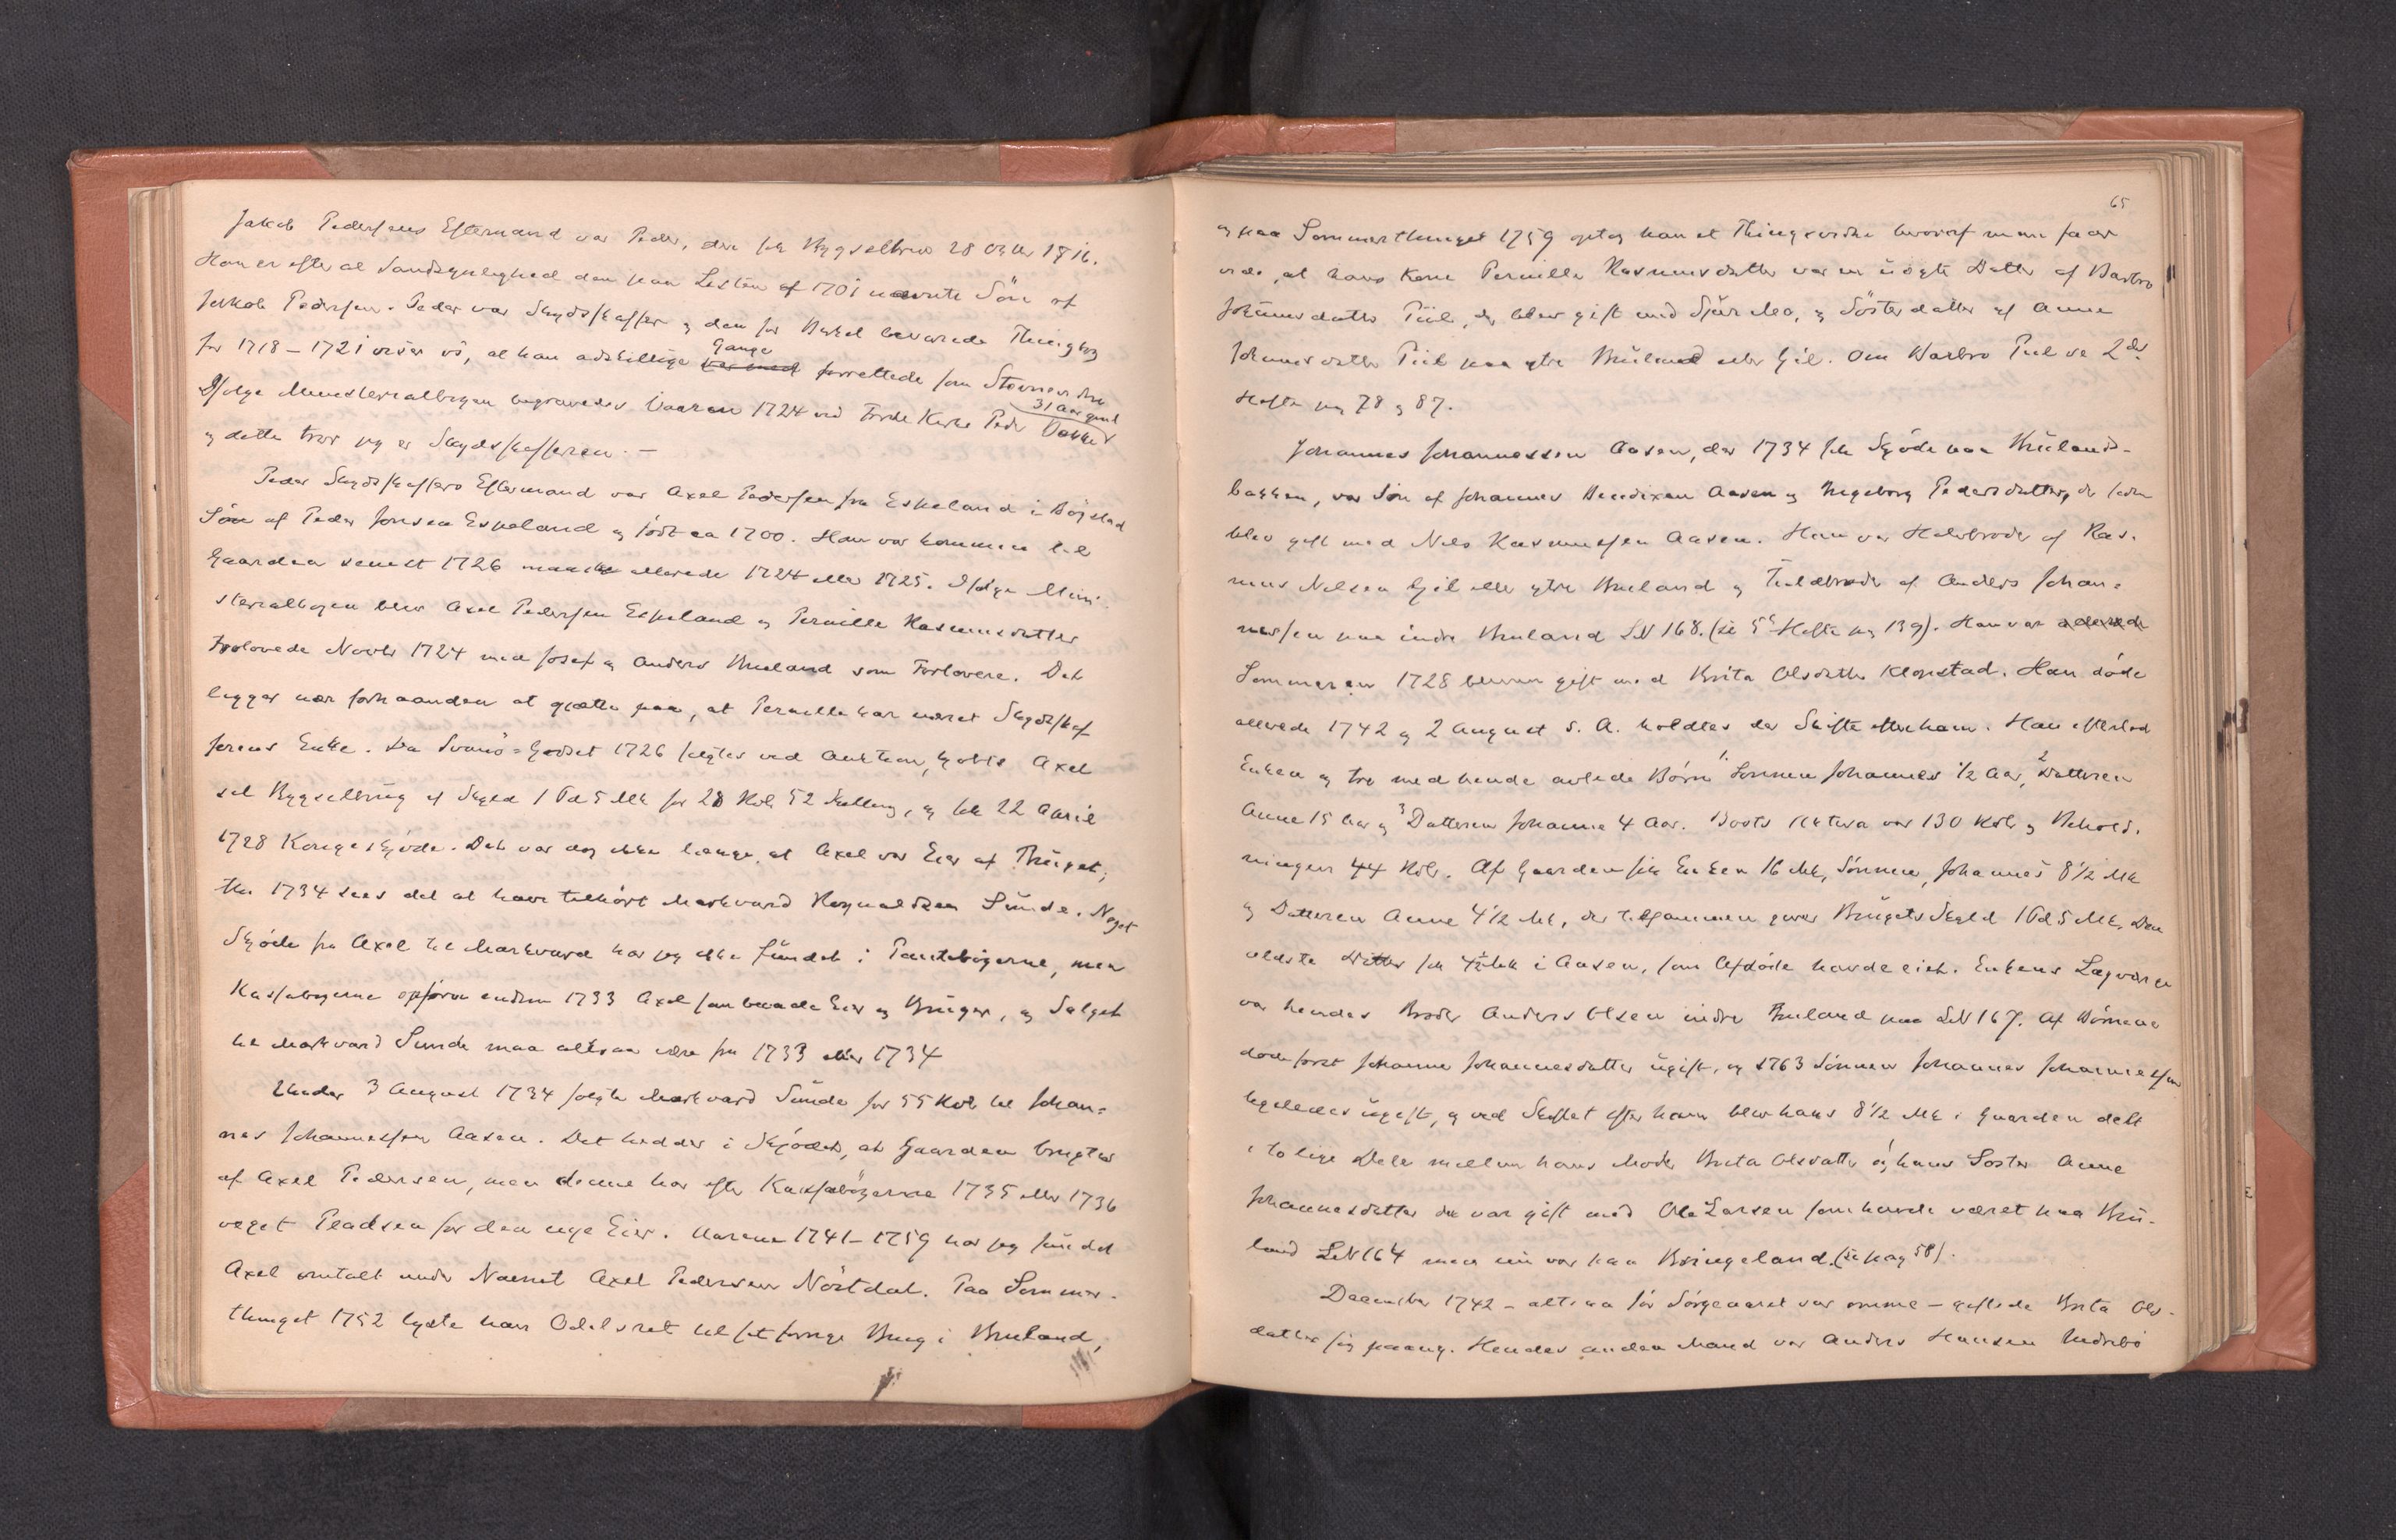 Jakob Pedersens Eftermand var Peder, der fik Bygselbrev 28 Oktbr 1716.
Han er efter al Sandsynlighed den paa Listen af 1701 nævnte Sön af
Jakob Pedersen. Peder var Skydsskaffer og den for Herred bevarede Thingbog
for 1718–1721 viser os, at han adskillige Gange forrettede som Stevnevidne
Ifölge Ministerialbogen begravedes Vaaren 1724 ved Förde Kirke Peder Bakke 31 Aar gml
og dette tror jeg er Skydsskafferen. –
Peder Skydsskaffers Eftermand var Axel Pedersen fra Espeland i Böjstad
Sön af Peder Jonsen Espeland og födt ca 1700. Han var kommen til
Gaarden senest 1726 maaske allerede 1724 eller 1725. Ifölge Mini-
sterialbogen blev Axel Pedersen Espeland og Pernille Rasmusdatter
trolovede Novbr 1724 med Josef og Anders Bruland som Forlovere. Det
ligger nær forhaanden at gjætte paa, at Pernille har været Skydsskaf
ferens Enke. Da Svanö-Godset 1726 solgtes ved Auktion, kjöbte Axel
sit Bygselbrug af Skyld 1 Pd 5 Mk for 28 Rdl 52 Skilling, og fik 22 April
1728 Kongeskjöde. Det var dog ikke længe, at Axel var Eier af Bruget;
thi 1734 sees det at have tilhört Markvard Reynaldsen Sunde. Noget
Skjöde fra Axel til Markvard har jeg ikke fundet i Pantebögerne, men
Kassebögerne opförer endnu 1733 Axel som baade Eier og Bruger, og Salget
til Markvard Sunde maa altsaa være fra 1733 eller 1734
Under 3 August 1734 solgte Markvard Sunde for 55 Rdl til Johan-
nes Johannessen Aasen. Det hedder i Skjödet, at Gaarden brugtes
af Axel Pedersen, men denne har efter Kassebögerne 1735 eller 1736
veget Pladsen for den nye Eier. Aarene 1741–1759 har jeg fundet
Axel omtalt under Navnet Axel Pedersen Nöstdal. Paa Sommer-
thinget 1752 lyste han Odelsret til sit forrige Brug i Bruland,
65
og paa Sommerthinget 1759 optog han et Thingsvidne hvoraf man faar
vide, at hans Kone Pernille Rasmusdatter var en uægte Datter af Barbro
Johannesdatter Piil, der blev gift med Sjur Mo, og Sösterdatter af Anne
Johannesdatter Piil paa ytre Bruland eller Gil. Om Barbro Piil se 2det
Hefte pag 78 og 87.
Johannes Johannessen Aasen, der 1734 fik Skjöde paa Brulands-
bakken, var Sön af Johannes Bendixen Aasen og Ingeborg Pedersdatter, der siden
blev gift med Nils Rasmussen Aasen. Han var Halvbroder af Ras-
mus Nilsen Gil eller ytre Bruland og Fuldbroder af Anders Johan-
nessen paa indre Bruland LN 168. (se 5te Hefte pag 139). Han var allerede
Sommeren 1728 bleven gift med Brita Olsdatter Klopstad. Han döde
allerede 1742 og 2 August s. A. holdtes der Skifte efter ham. Han efterlod
Enken og tre med hende avlede Börn 1. Sönnen Johannes ½ Aar, 2 Datteren
Anne 15 Aar og 3 Datteren Johanne 4 Aar. Boets Aktiva var 130 Rdlr og Behold-
ningen 44 Rdlr. Af Gaarden fik Enken 16 Mk, Sönnen Johannes 8½ Mk
og Datteren Anne 4½ Mk, der tilsammen giver Brugets Skyld 1 Pd 5 Mk. Den
ældste Datter fik 4½ Mk i Aasen, som Afdöde havde eiet. Enkens Lagværge
var hendes Broder Anders Olsen indre Bruland paa LN 167. Af Börnene
döde först Johanne Johannesdatter ugift, og 1763 Sönnen Johannes Johannessen
ligeledes ugift, og ved Skiftet efter ham blev hans 8½ Mk i Gaarden delt
i to lige Dele mellem hans Moder Brita Olsdatter og hans Söster Anne
Johannesdatter der var gift med Ole Larsen som havde været paa Bru-
land LN 164 men nu var paa Kvingeland. (se pag 58).
December 1742 – altsaa för Sörgeaaret var omme – giftede Brita Ols-
datter sig paany. Hendes anden Mand var Anders Hansen Indrebö